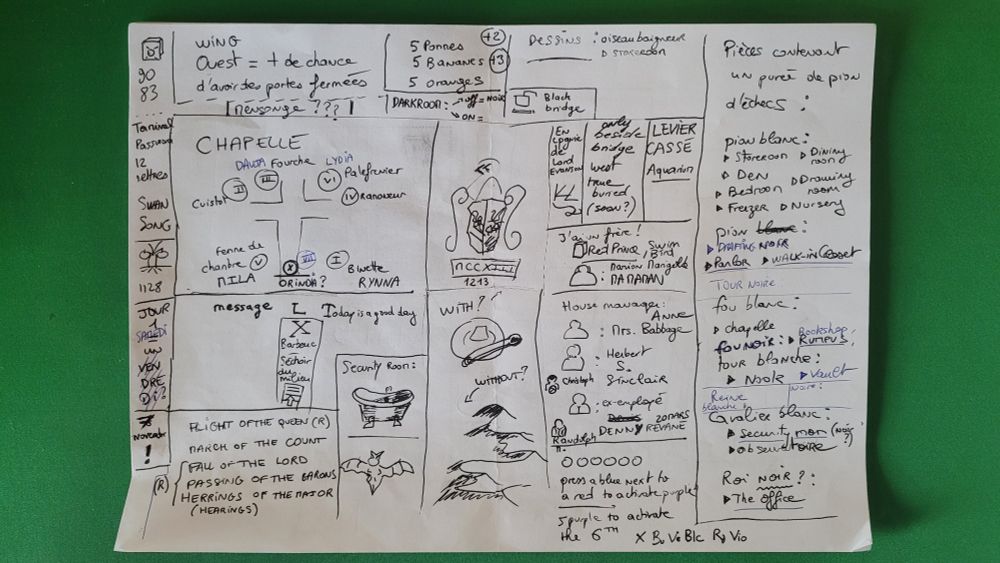 90
83
Terminal
Password
12
lettres
SWAN
SONG
1128
JOUR
1
SAMEDI
UN
VEN
DRE
DI?
novembre
!
WING
Ouest = + de chance
d'avoir des portes fermées
[Mensonge ???]
5 Pommes +2
5 Bananes +3
5 oranges
DARKROOM: off = NOIR
ON =
DESSINS : oiseau baigneur
D STOREROOM
Black
bridge
CHAPELLE
DAUJA Fourche LYDIA
II III VI Palefrenier
Cuistot IV Ramoneur
Femme de
chambre V
MILA
X VII
ORINDA?
I Binette
RYNNA
message
L
X
Barbeuc
Séchoir
du
milieu
Today is a good day
Security Room:
FLIGHT OF THE QUEEN (R)
MARCH OF THE COUNT
FALL OF THE LORD
PASSING OF THE BARONS
(R) HERRINGS OF THE MAJOR
(HEARINGS)
MCCXIII
1213
WITH?
WITHOUT?
En
de
Lord
2
only
beside
bridge
west
true
buried
(soon?)
LEVIER
CASSÉ
Aquarium
J'ai un frère!
Red Prince / Swim
Bird
Marion Marigold
MAMAMAN
House manager:
ANNE
: Mrs. Babbage
: Herbert
S.
Christoph SINCLAIR
: ex-employé
DENNY
Randolph
press a blue next to
a red to activate purple
5 purple to activate
the 6TH X Bu Vi Blc Ry Vio
Pièces contenant
un purée de pion
d'échecs :
pion blanc:
▸ Storeroom ▸ Dining
room
▸ Den
▸ Bedroom ▸ Drawing
room
▸ Freezer ▸ Nursery
pion blanc:
▸ DRAFTING NOIR
▸ Parlor ▸ WALK-IN Closet
TOUR NOIRE
fou blanc:
▸ chapelle
fou NOIR: ▸ Bookshop,
RUMPUS,
tour blanche:
▸ Nook ▸ Vault
Reine
blanche:
noire:
Cavalier blanc:
▸ security room (noir
?)
▸ observatoire
Roi NOIR?:
▸ The Office